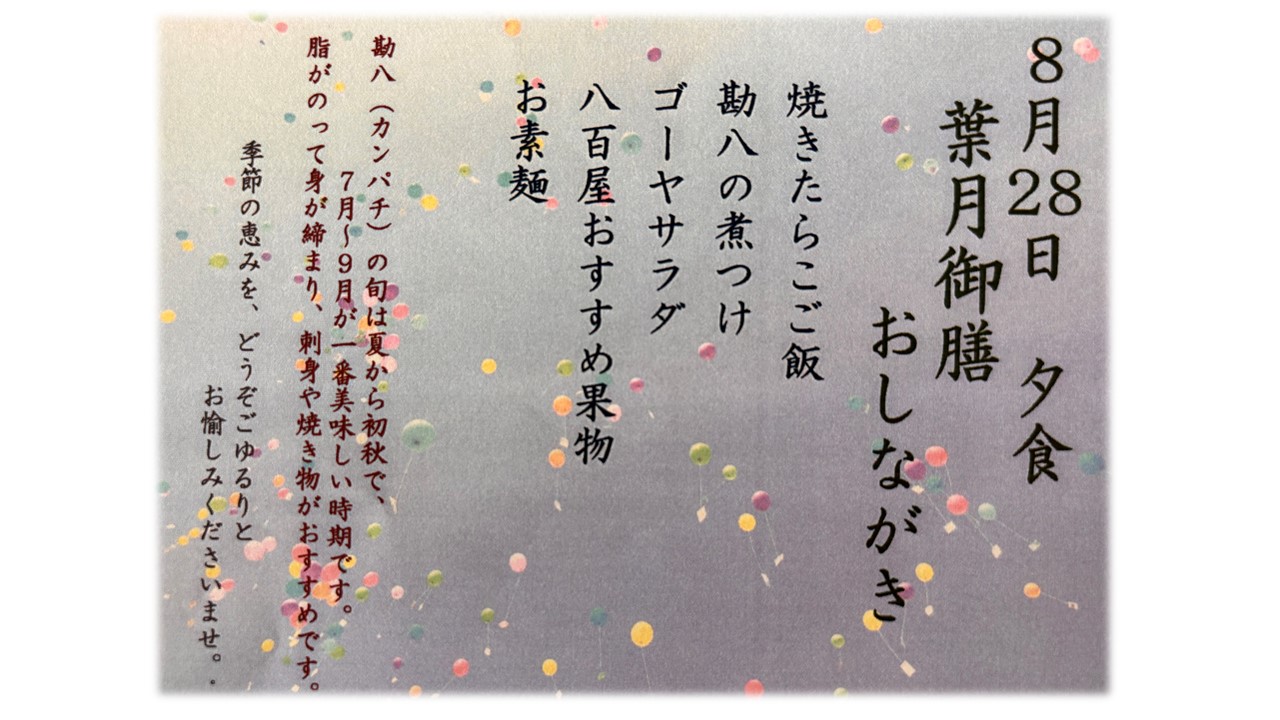 8月28日 夕食
葉月御膳
おしながき
焼きたらこご飯
勘八の煮つけ
ゴーヤサラダ
八百屋おすすめ果物
お素麺
勘八（カンパチ）の旬は夏から初秋で、
7月～9月が一番美味しい時期です。
脂がのって身が締まり、刺身や焼き物がおすすめです。
季節の恵みを、どうぞごゆるりと
お愉しみくださいませ。.